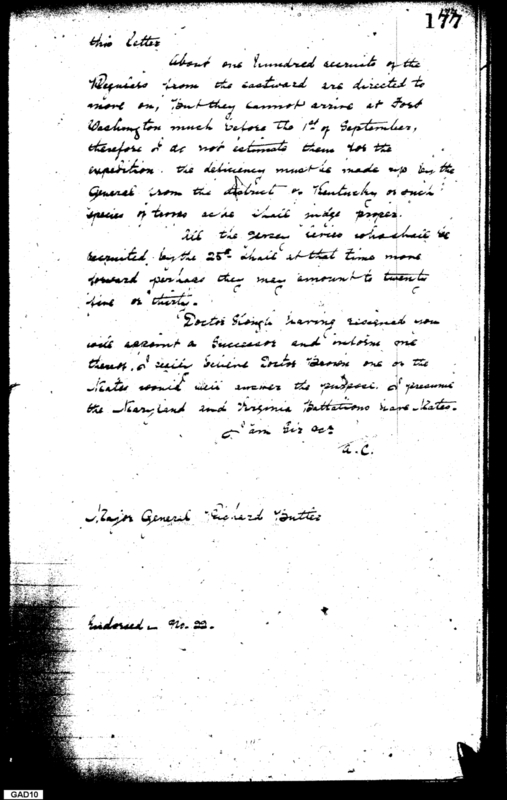 177
this letter
About one hundred recruits of the
Regulars from the eastward are directed to
move on, but they cannot arrive at Fort
Washington much before the 1st of September,
therefore I do not estimate them for the
expedition. the deficiency must be made up by the
General from the district of Kentucky or such
species of troops as he shall judge proper.
All the Jersey levies who shall be
recruited by the 25th shall at that time move
forward perhaps they may amount to twenty
five or thirty.
Doctor having resigned you
will appoint a Successor and inform me
thereof. I believe Doctor Brown one of the
Mates would well answer the purpose. I presume
the Maryland and Virginia Battalions have Mates.
I am Sir &c
Major General Richard Butler
Endorsed - No. 22.
GAD10